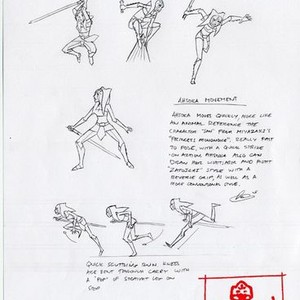 AHSOKA MOVEMENT
AHSOKA MOVES QUICKLY, MORE LIKE
AN ANIMAL. REFERENCE THE
CHARACTER "SAN" FROM MIYAZAKI'S
"PRINCESS MONONOKE". REALLY FAST
TO POSE, WITH A QUICK STRIKE
ION ACTION. AHSOKA ALSO CAN
DRAW HER LIGHTSABER AND FIGHT
ZATOICHI STYLE WITH A
REVERSE GRIP, AS WELL AS A
MORE CONVENTIONAL STYLE.
QUICK SCUTTLING RUN KNEES
ARE BENT THROUGH CARRY WITH
A "POP" UP STRAIGHT LEG ON